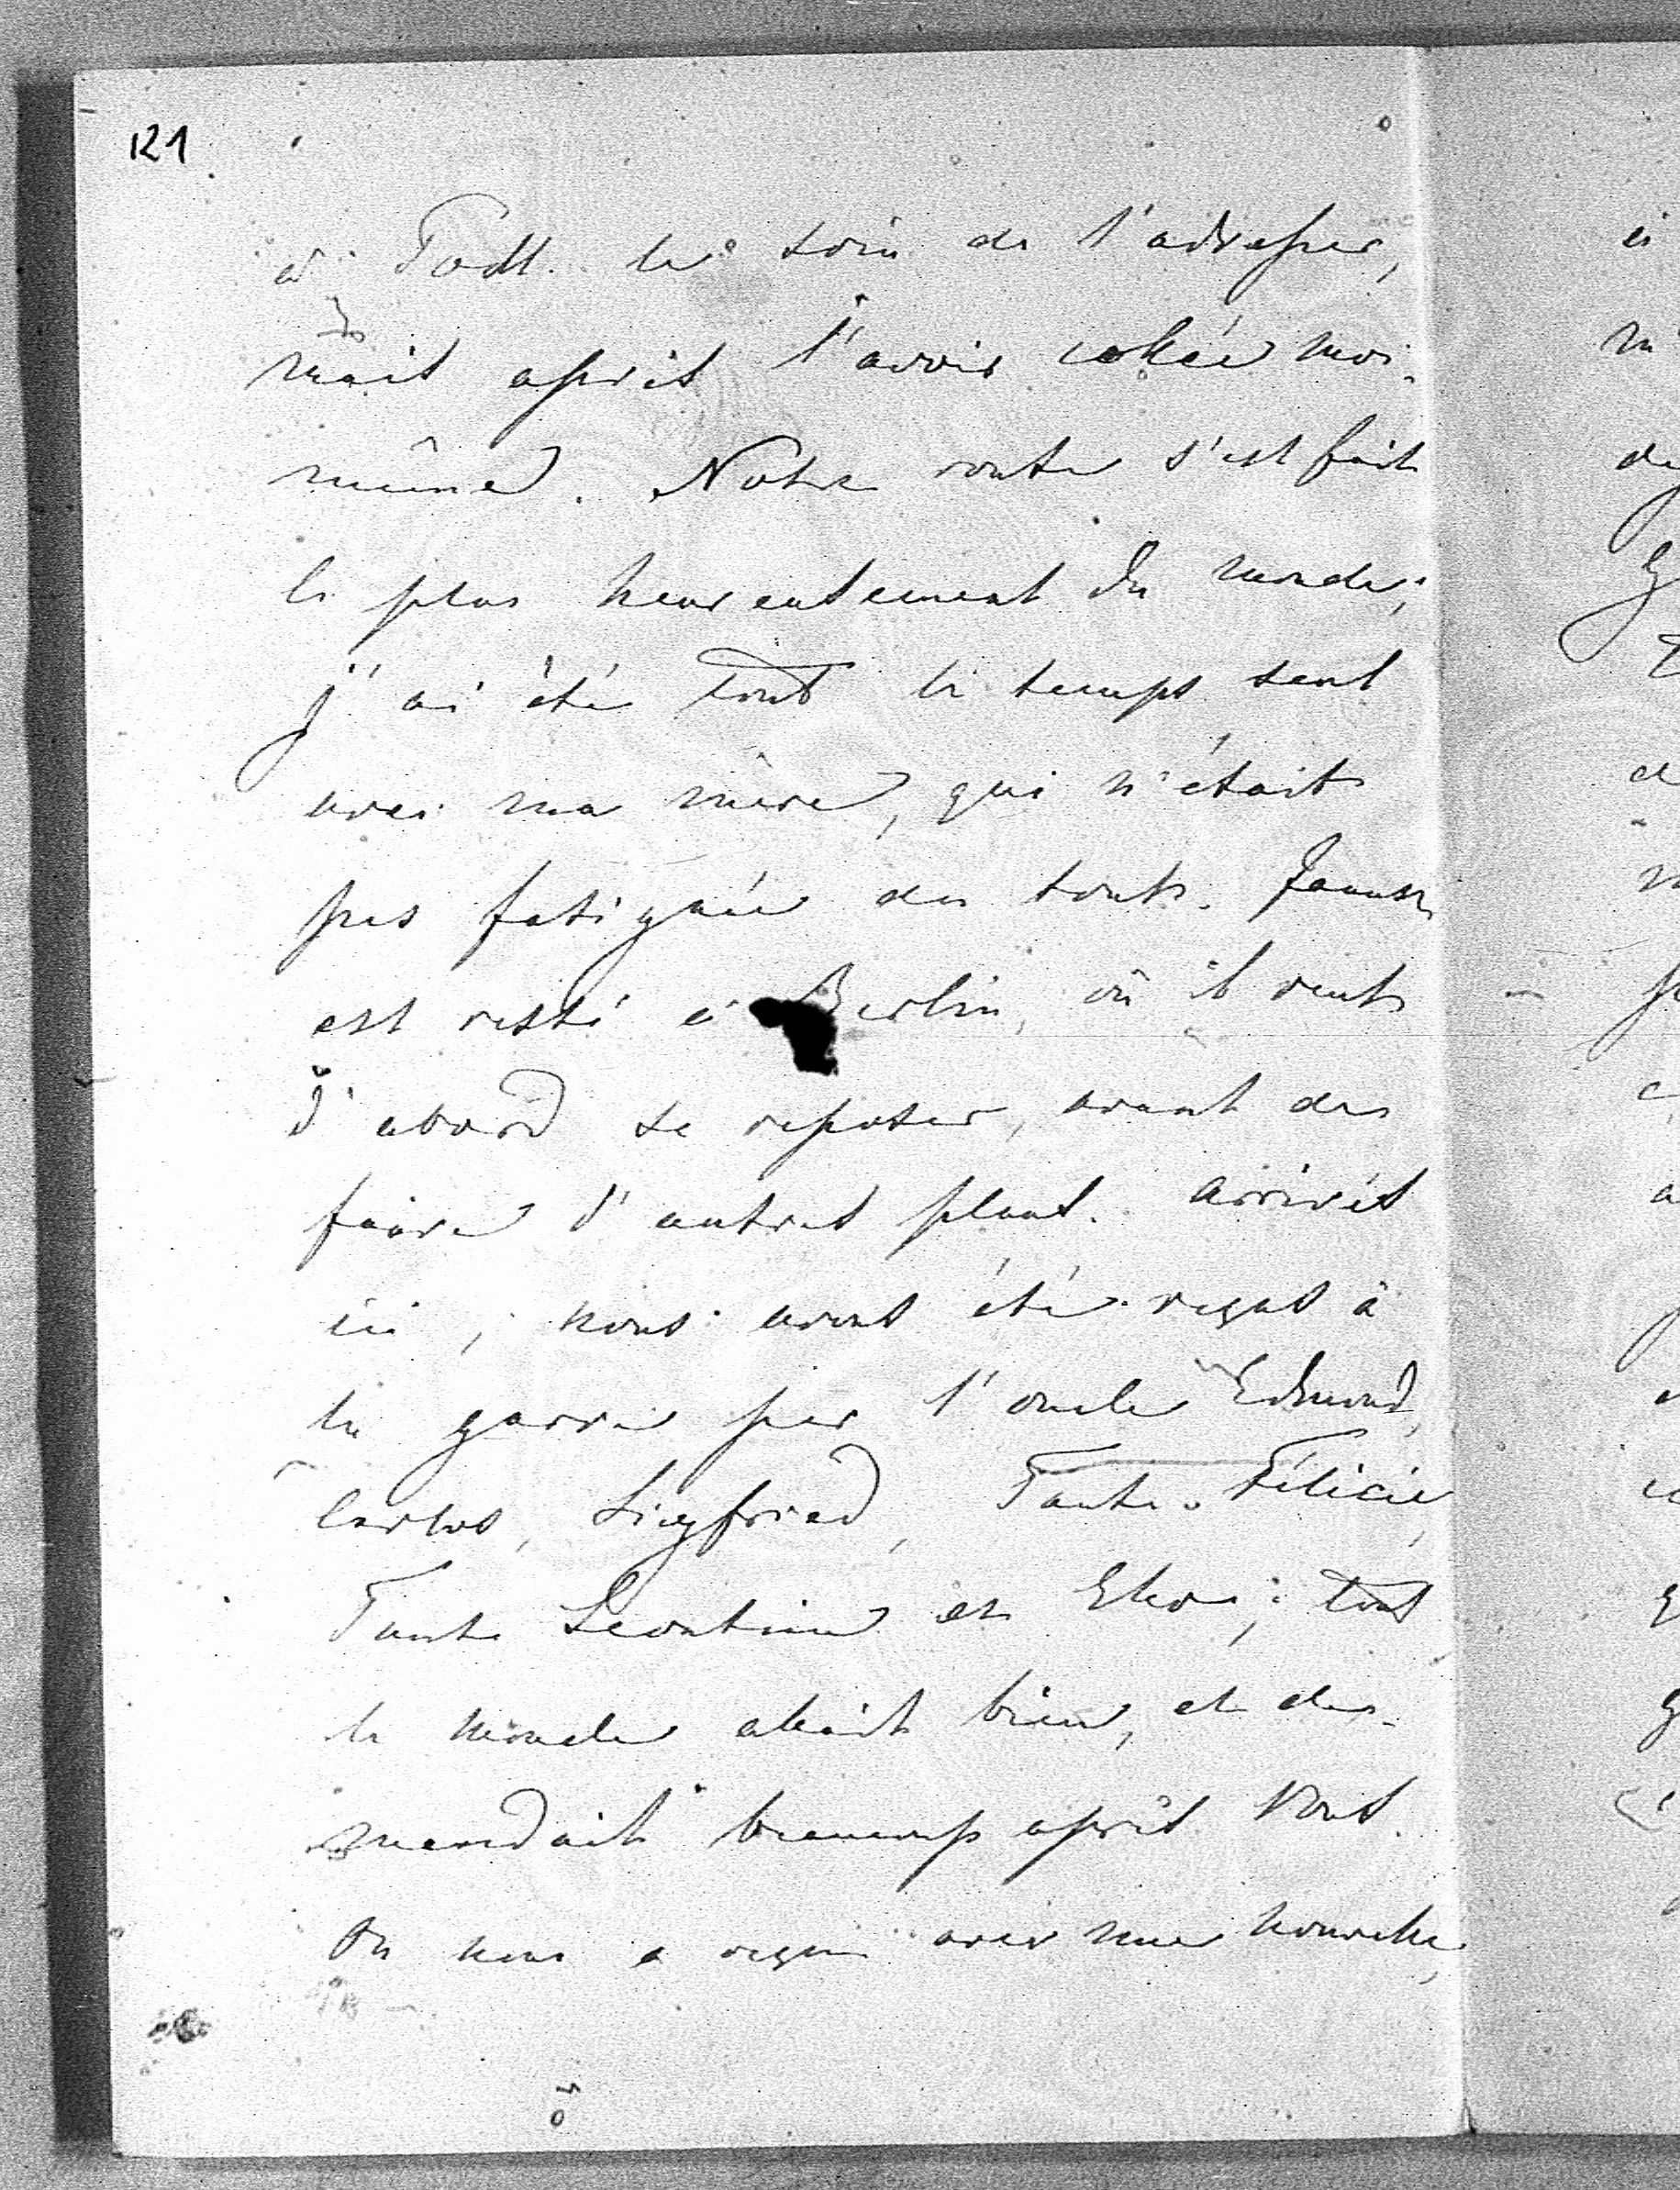 121
à Todt. le soin de l'adresser,
mais après l'avoir collée moi-
même. Notre route s'est fait
le plus heureusement du monde;
j'ai été tout le temps seul
avec ma mère, qui n'était
pas fatiguée du tout.
est resté à Berlin, où il veut
d'abord se reposer, avant de
faire d'autres plans. Arrivés
ici, nous avons été reçus à
la garre par l'oncle Edmond,
Carlos, Siegfried, Tante Félicie,
Tante Léontine et ; tout
le monde allait bien, et de-
mandait beaucoup après Vous.
On nous a reçu avec une nouvelle,